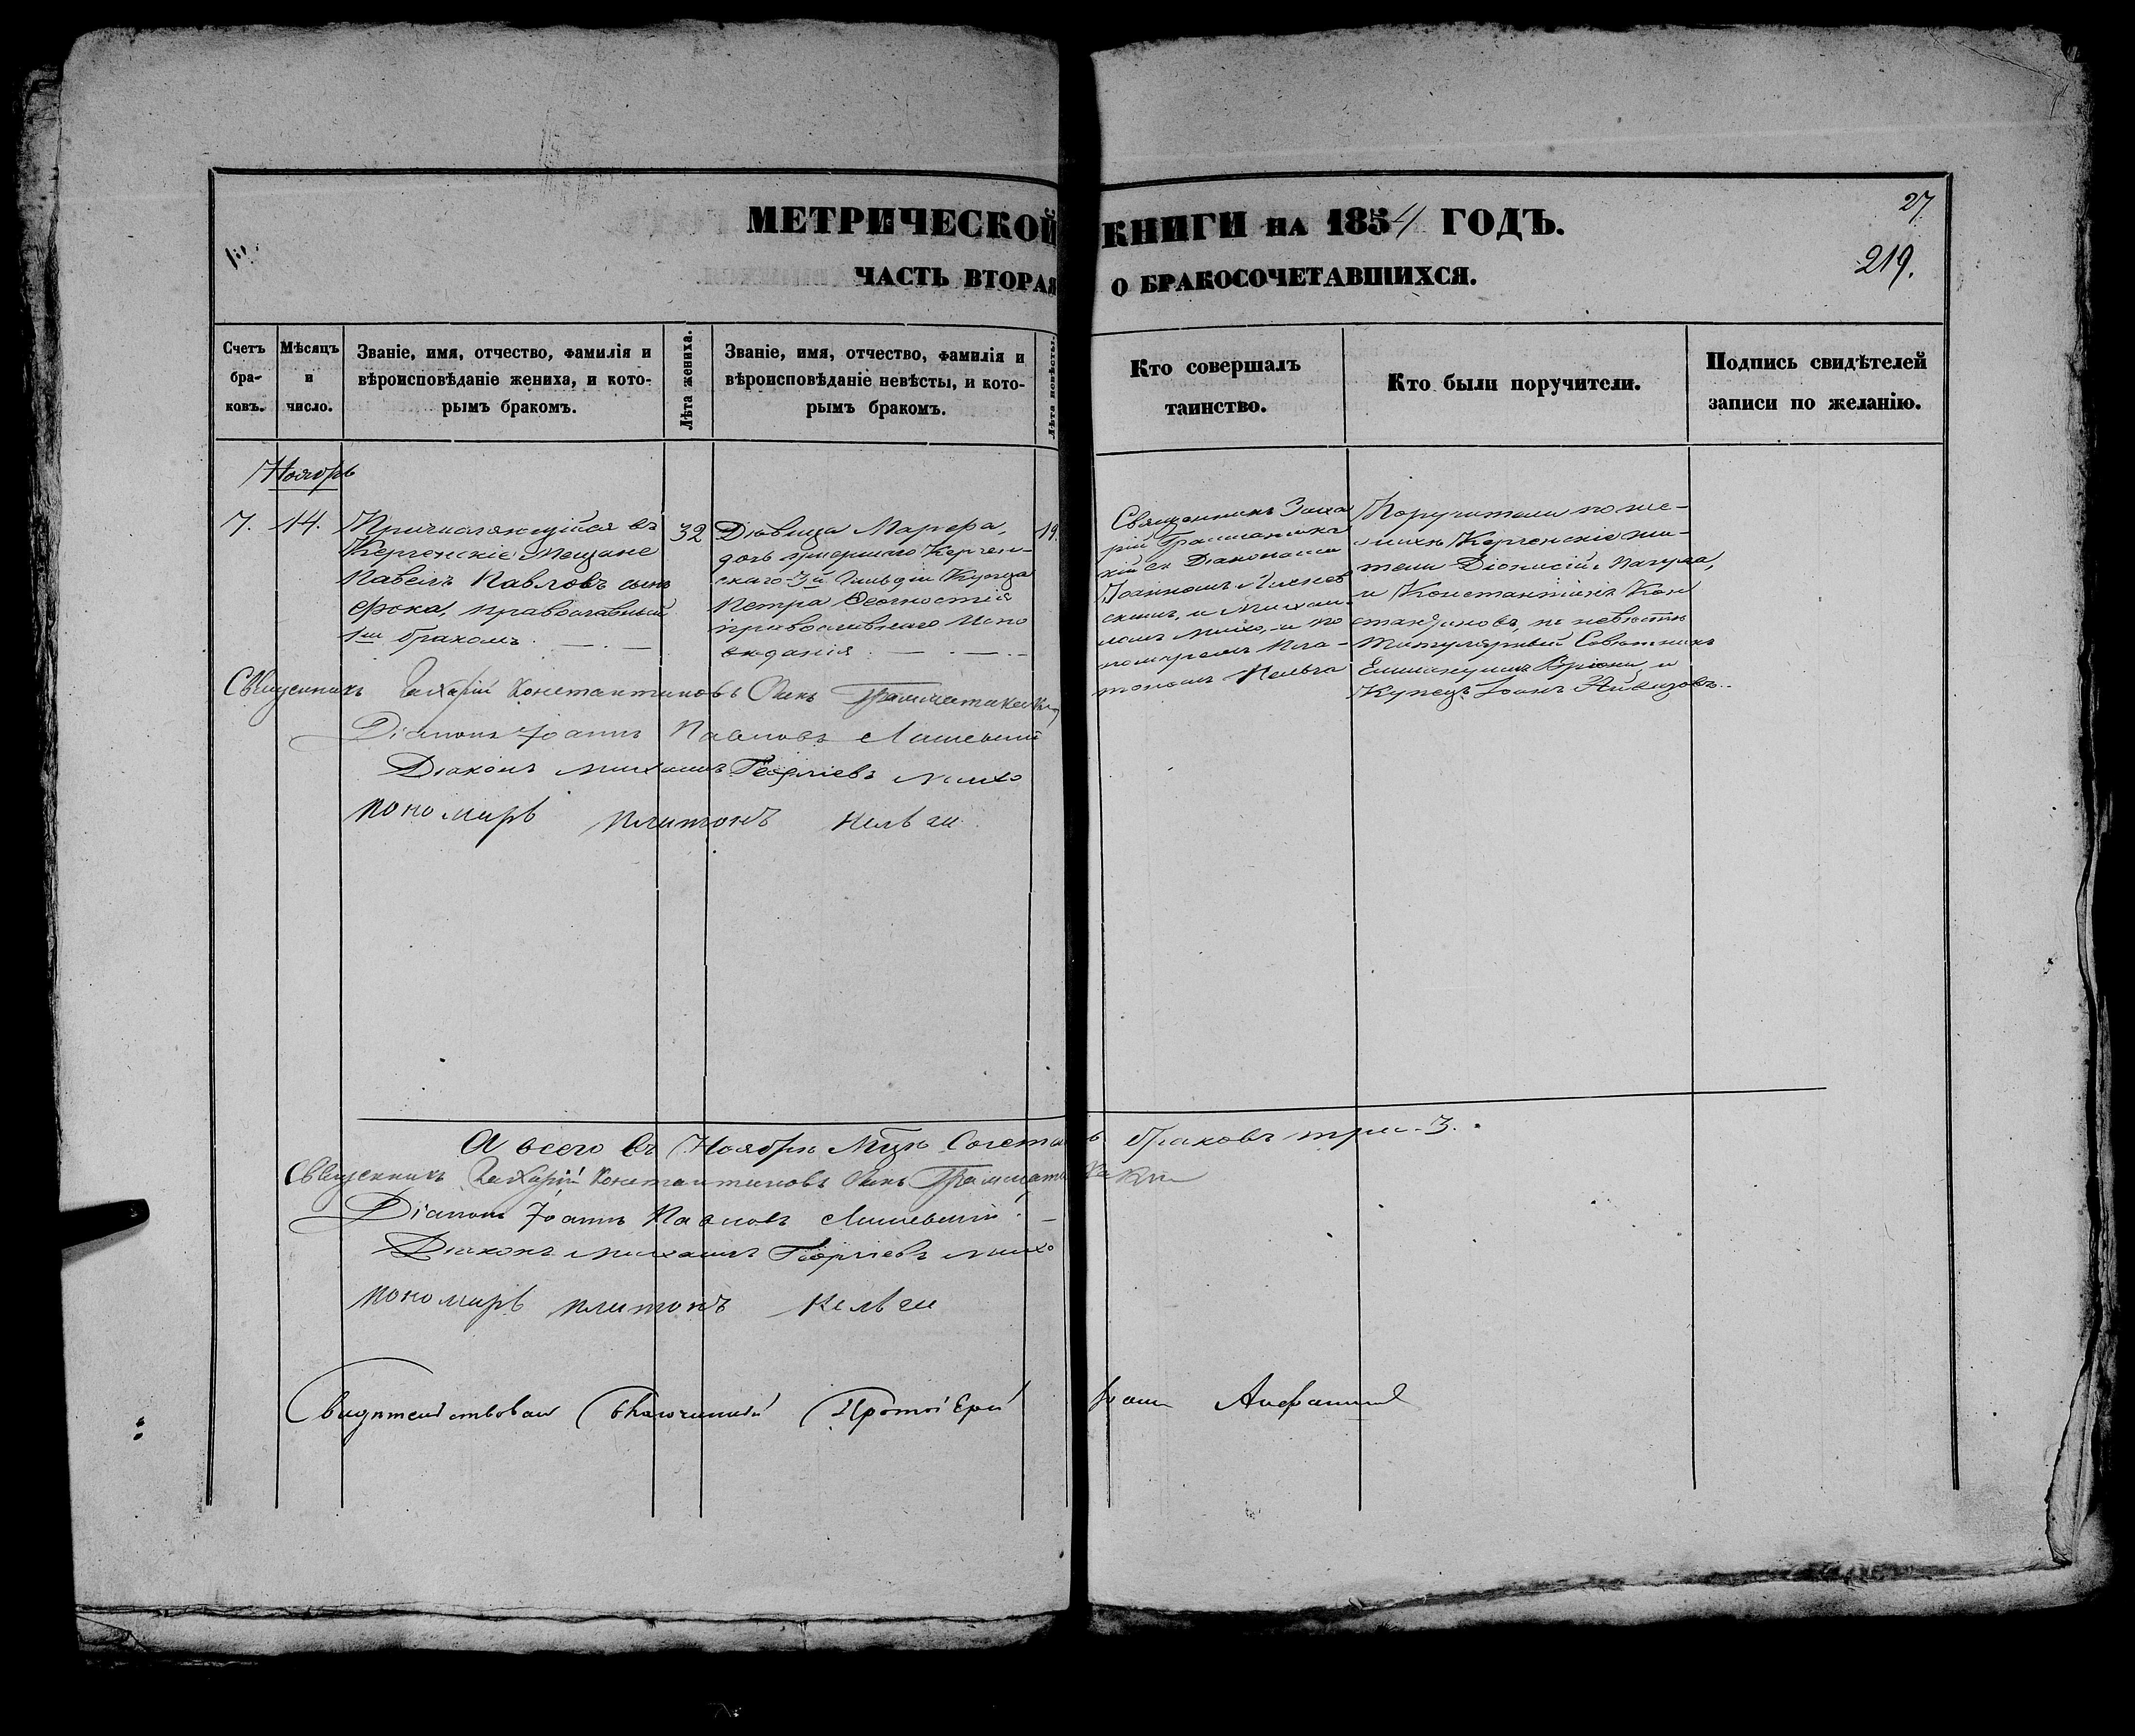 МЕТРИЧЕСКОЙ КНИГИ на 1854 ГОДЪ.
27
219.
ЧАСТЬ ВТОРАЯ О БРАКОСОЧЕТАВШИХСЯ.
Счетъ бра- ковъ.
Мѣсяцъ и число.
Званіе, имя, отчество, фамилія и
вѣроисповѣданіе жениха, и кото-
рымъ бракомъ.
Лѣта жениха.
Званіе, имя, отчество, фамилія и
вѣроисповѣданіе невѣсты, и кото-
рымъ бракомъ.
Лѣта невѣсты.
Кто совершалъ
таинство.
Кто были поручители.
Подпись свидѣтелей
записи по желанію.
Ноябрь
7.
14.
Причисляющійся въ
Керченскіе Мещане
Павелъ Павловъ сынъ
православный
1мъ бракомъ.
32
Дѣвица Марфа,
дочь умершаго Керчен-
скаго 3й Гильдіи Купца
Петра
православнаго Испо
веданія
19.
Священникъ Заха
рій Грамматика
кій съ Діаконами
Іоанномъ
скимъ, и Михаи-
ломъ Михо, и по
номаремъ Пла-
тономъ Кельга
Поручители по же-
нихѣ Керченскіе жи-
тели Діонисій
и Константинъ Кон
стандиновъ, по невѣстѣ
Титулярный Совѣтникъ
Еммануилъ Вріони, и
Купецъ Іоанъ Айвазовъ.
Священникъ Захарій Константиновъ Сынъ Грамматикаки
Діаконъ Іоаннъ Павловъ
Діаконъ Михаилъ Георгіевъ Михо
Пономаръ Платонъ Кельги
А всего въ Ноябрѣ Мцѣ браковъ три. 3.
Священникъ Захарій Константиновъ Сынъ Грамматикаки
Діаконъ Іоаннъ Павловъ
Діаконъ Михаилъ Георгіевъ Михо
Пономаръ Платонъ Кельги
Свидѣтельствовалъ Благочинный Протоіерей